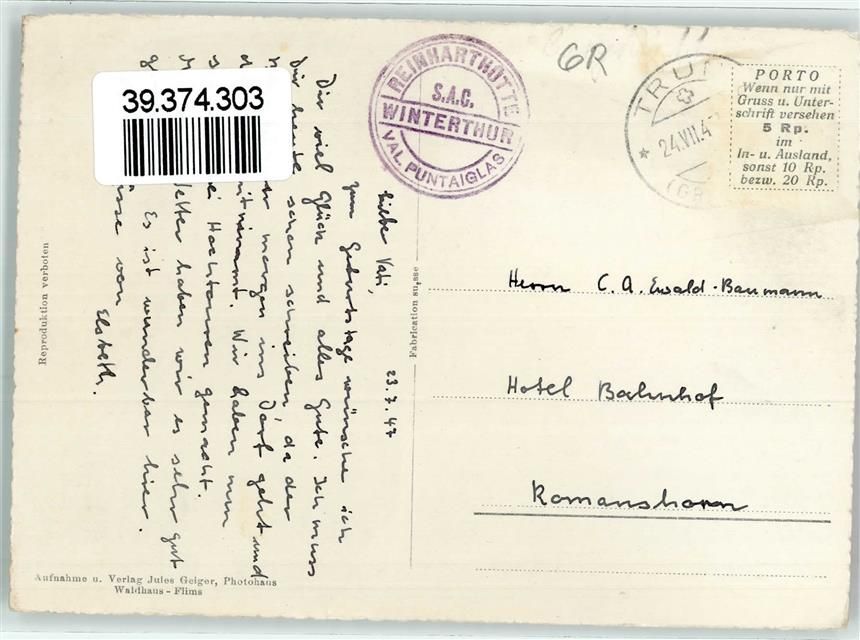 39.374.303
REINHARTHÜTTE
S.A.C.
WINTERTHUR
VAL. PUNTAIGLAS
GR
TRUN
24.VII.4
(GR
PORTO
Wenn nur mit
Gruss u. Unter-
schrift versehen
5 Rp.
im
In- u. Ausland,
sonst 10 Rp.
bezw. 20 Rp.
23.7.47
Liebe Vati,
zum Geburtstage wünsche ich
Dir viel Glück und alles Gute. Ich muss
Dir heute schon schreiben, da der
morgen ins Dorf geht und
mitnimmt. Wir haben nun
Hochtouren gemacht.
haben wir es sehr gut
Es ist wunderbar hier.
von
Elsbeth.
Herrn C. A. Ewald-Baumann
Hotel Bahnhof
Romanshorn
Fabrication suisse
Reproduktion verboten
Aufnahme u. Verlag Jules Geiger, Photohaus
Waldhaus - Flims